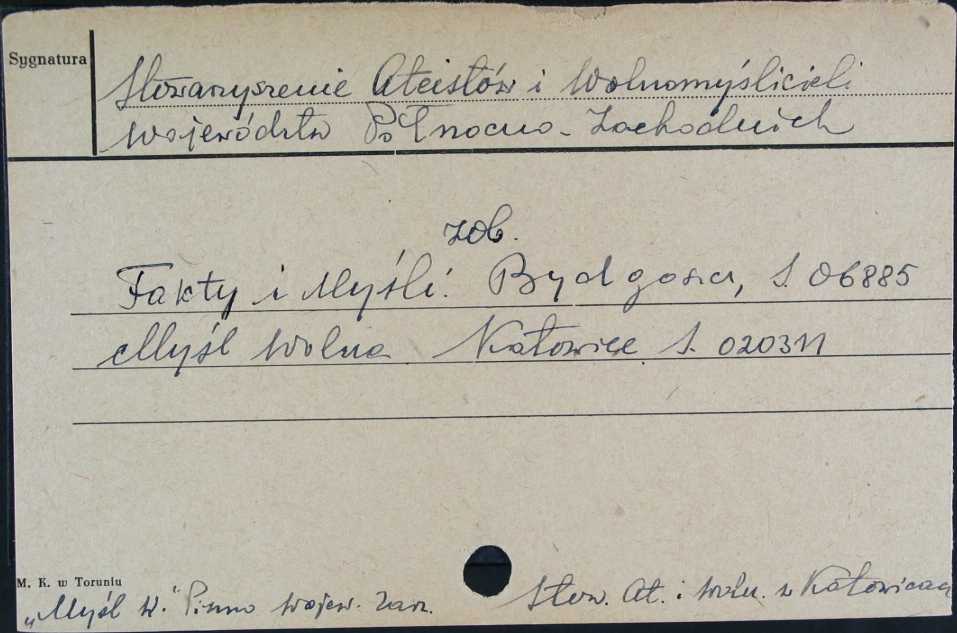 Sygnatura
Stowarzyszenie Ateistów i Wolnomyślicieli
Województw Północno-Zachodnich
zob.
Fakty i Myśli. Bydgoszcz, S. 06885
Myśl Wolna Katowice S. 020311
M. K. w Toruniu
„Myśl W." Pismo Wojew. Zarz. Stow. At. i Woln. w Katowicach